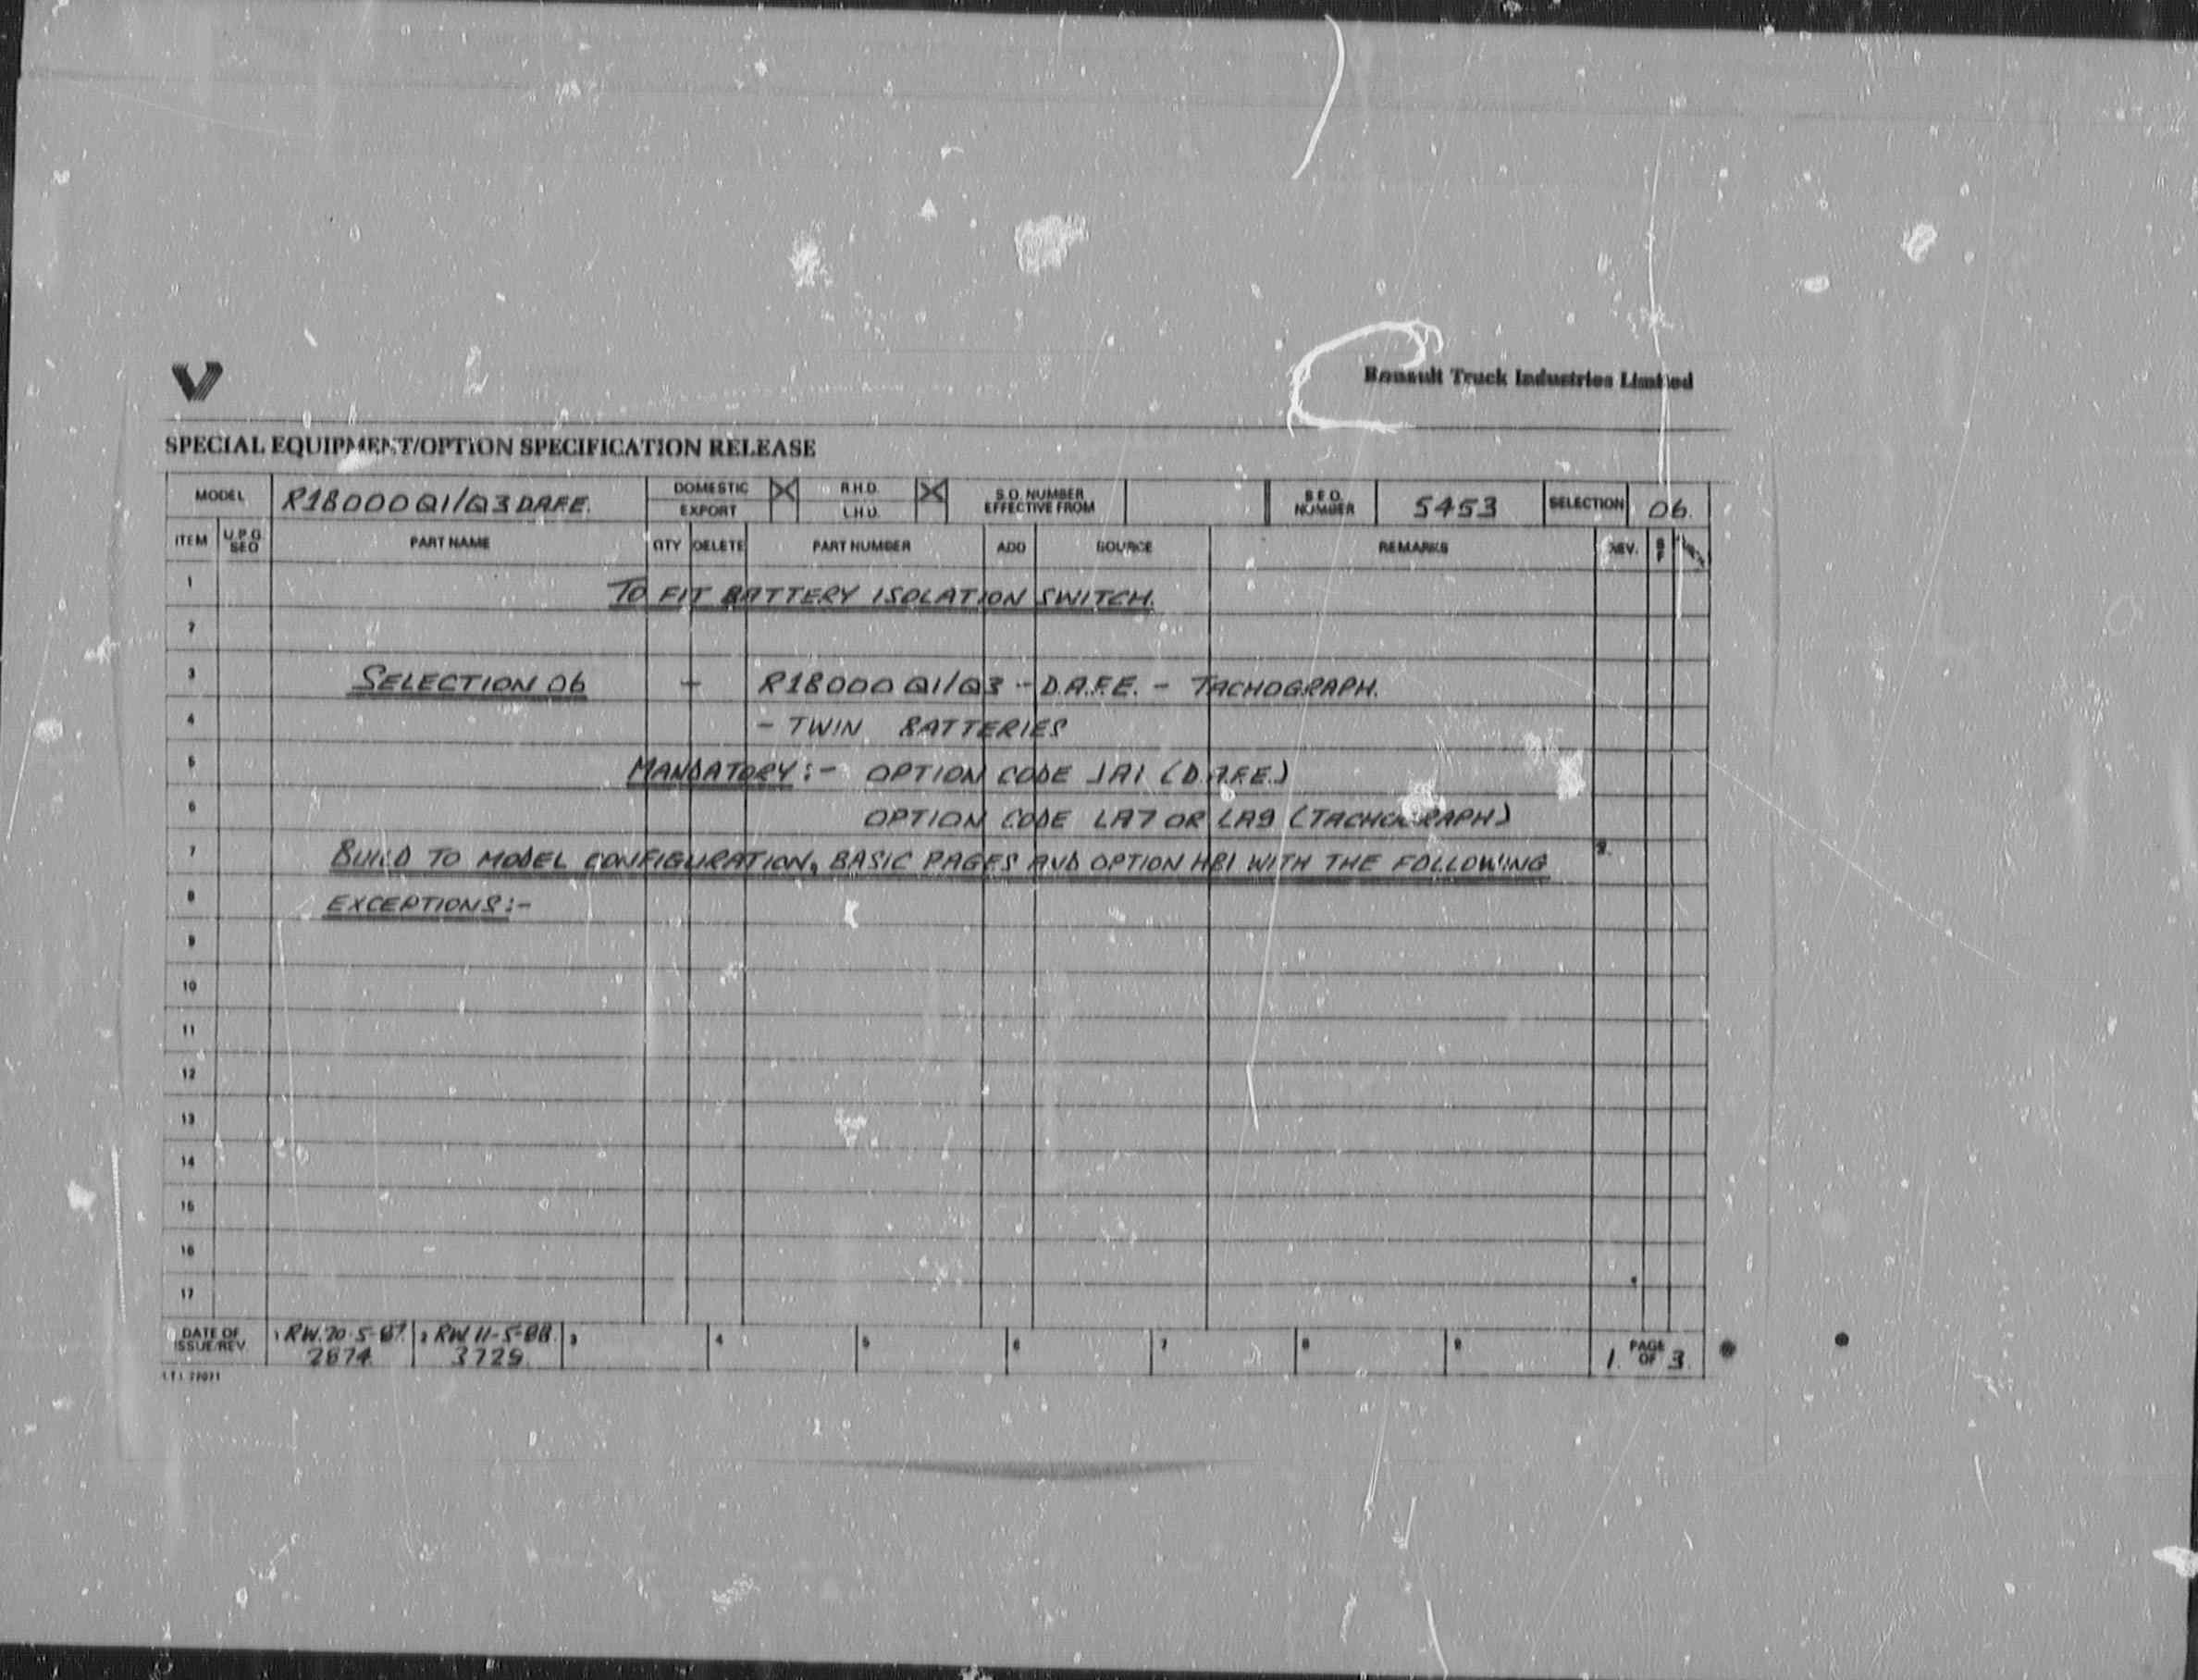 Renault Truck Industries Limited
SPECIAL EQUIPMENT/OPTION SPECIFICATION RELEASE
MODEL R18000Q1/Q3 D.A.F.E. DOMESTIC R.H.D. S.O. NUMBER EFFECTIVE FROM S.E.O. NUMBER 5453 SELECTION 06.
EXPORT L.H.D.
ITEM U.P.G. SEQ PART NAME QTY DELETE PART NUMBER ADD SOURCE REMARKS REV.
1 TO FIT BATTERY ISOLATION SWITCH.
2
3 SELECTION 06 - R18000Q1/Q3 - D.A.F.E. - TACHOGRAPH.
4 - TWIN BATTERIES
5 MANDATORY:- OPTION CODE JA1 (D.A.F.E.)
6 OPTION CODE LA7 OR LA9 (TACHOGRAPH)
7 BUILD TO MODEL CONFIGURATION, BASIC PAGES AND OPTION HB1 WITH THE FOLLOWING
8 EXCEPTIONS:-
9
10
11
12
13
14
15
16
17
DATE OF ISSUE/REV. 1 RW. 20-5-87. 2 RW 11-5-88. 3 4 5 6 7 8 9 1. PAGE OF 3.
2874 3729